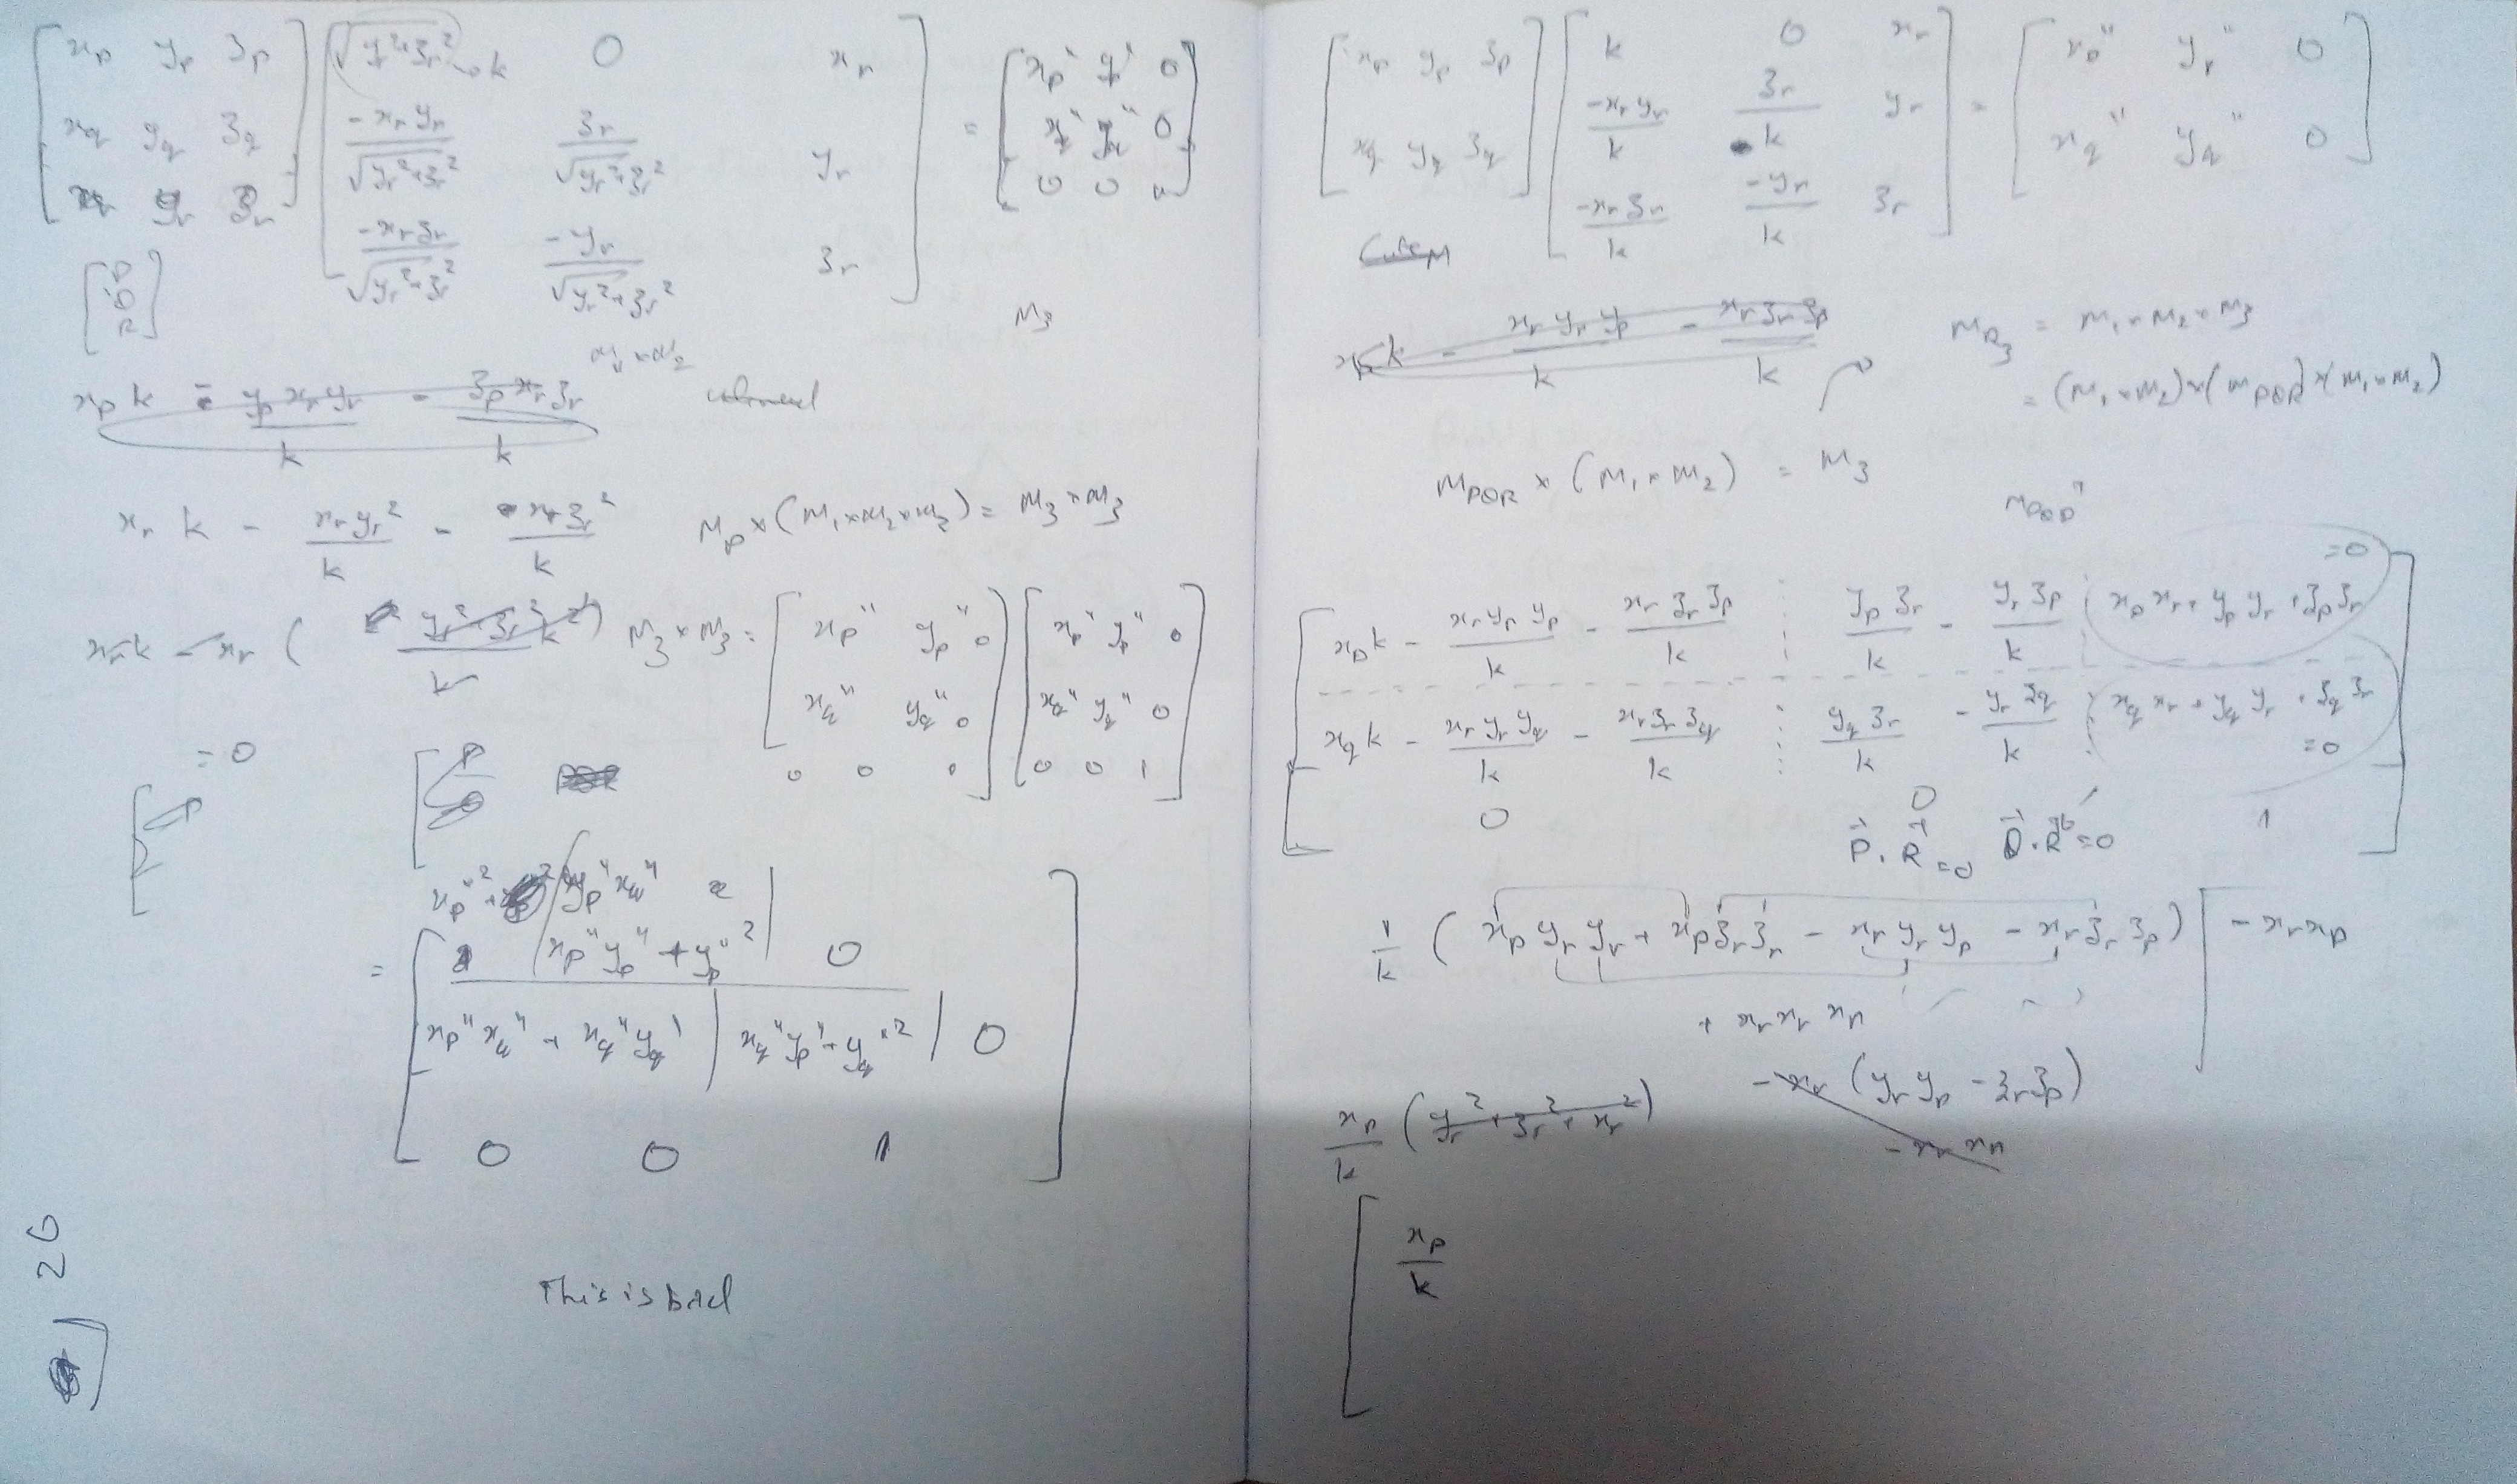 [ x_p y_p z_p ; x_q y_q z_q ; x_r y_r z_r ] [ √(y_r²+z_r²) → k 0 x_r ; -x_r y_r/√(y_r²+z_r²) z_r/√(y_r²+z_r²) y_r ; -x_r z_r/√(y_r²+z_r²) -y_r/√(y_r²+z_r²) z_r ] = [ x_p" y_p" 0 ; x_q" y_q" 0 ; 0 0 1 ]
[ P ; Q ; R ]
M₁ × M₂
M₃
x_p k - y_p x_r y_r/k - z_p x_r z_r/k
x_r k - x_r y_r²/k - x_r z_r²/k
M_p × (M₁ × M₂ × M₃) = M₃ × M₃
x_r k - x_r ( y_r² + z_r² k²/k )
= 0
M₃ × M₃ = [ x_p" y_p" 0 ; x_q" y_q" 0 ; 0 0 0 ] [ x_p" y_p" 0 ; x_q" y_q" 0 ; 0 0 1 ]
x_p"² + y_p" x_q"
= [ x_p" y_p" + y_p"² | 0
x_p" x_q" + x_q" y_q" | x_q" y_p" + y_q"² | 0
0 0 1 ]
This is bad
26
[ x_p y_p z_p ; x_q y_q z_q ] [ k 0 x_r ; -x_r y_r/k z_r/k y_r ; -x_r z_r/k -y_r/k z_r ] = [ x_p" y_r" 0 ; x_q" y_q" 0 ]
x_p k - x_r y_r y_p/k - x_r z_r z_p/k
M_R₃ = M₁ × M₂ × M₃
= (M₁ × M₂) × (M_PQR) × (M₁ × M₂)
M_PQR × (M₁ × M₂) = M₃
M_PQR"
= 0
[ x_p k - x_r y_r y_p/k - x_r z_r z_p/k y_p z_r/k - y_r z_p/k x_p x_r + y_p y_r + z_p z_r
x_q k - x_r y_r y_q/k - x_r z_r z_q/k y_q z_r/k - y_r z_q/k x_q x_r + y_q y_r + z_q z_r
= 0
0 0 1 ]
P⃗ . R⃗ = 0 Q⃗ . R⃗ = 0
1/k ( x_p y_r y_r + x_p z_r z_r - x_r y_r y_p - x_r z_r z_p ) - x_r x_p
+ x_r x_r x_p
x_p/k ( y_r² + z_r² + x_r² ) - x_r ( y_r y_p - z_r z_p )
- x_r x_p
[ x_p/k